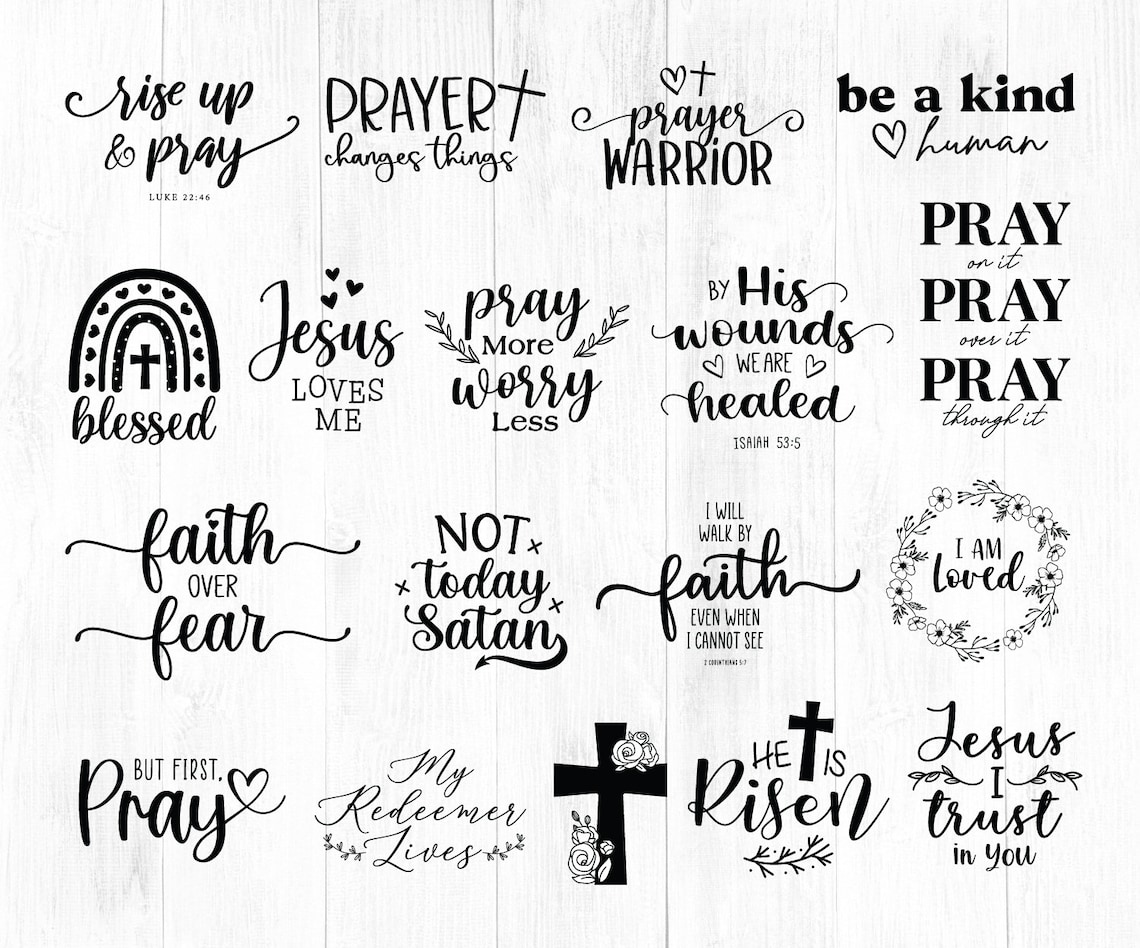 rise up
& pray
LUKE 22:46
PRAYER
changes things
prayer
WARRiOR
be a kind
human
blessed
Jesus
LOVES
ME
pray
More
worry
Less
BY His
wounds
WE ARE
healed
ISAIAH 53:5
PRAY
on it
PRAY
over it
PRAY
through it
faith
OVER
fear
NOT
today
Satan
I WILL
WALK BY
faith
EVEN WHEN
I CANNOT SEE
2 CORINTHIANS 5:7
I AM
Loved
BUT FIRST,
Pray
My
Redeemer
Lives
HE IS
Risen
Jesus
I
trust
in you